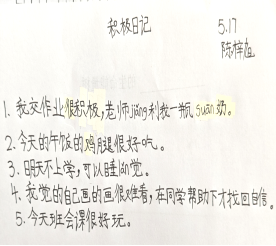 积极日记 5.17
陈梓
1. 我交作业很积极,老师jiǎng利我一瓶suān奶。
2. 今天的午饭的鸡腿很好吃。
3. 明天不上学,可以睡lǎn觉。
4. 我觉的自己画的画很难看,在同学帮助下才找回自信。
5. 今天班会课很好玩。